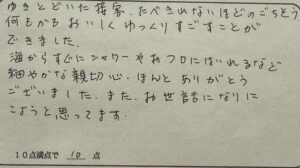 ゆきとどいた接客 たべきれないほどのごちそう
何もかもおいしくゆっくりすごすことが
できました。
海からすぐにシャワーやおフロにはいれるなど
細やかな親切心。ほんとありがとう
ございました。また、お世話になりに
こようと思ってます。
10点満点で 10 点